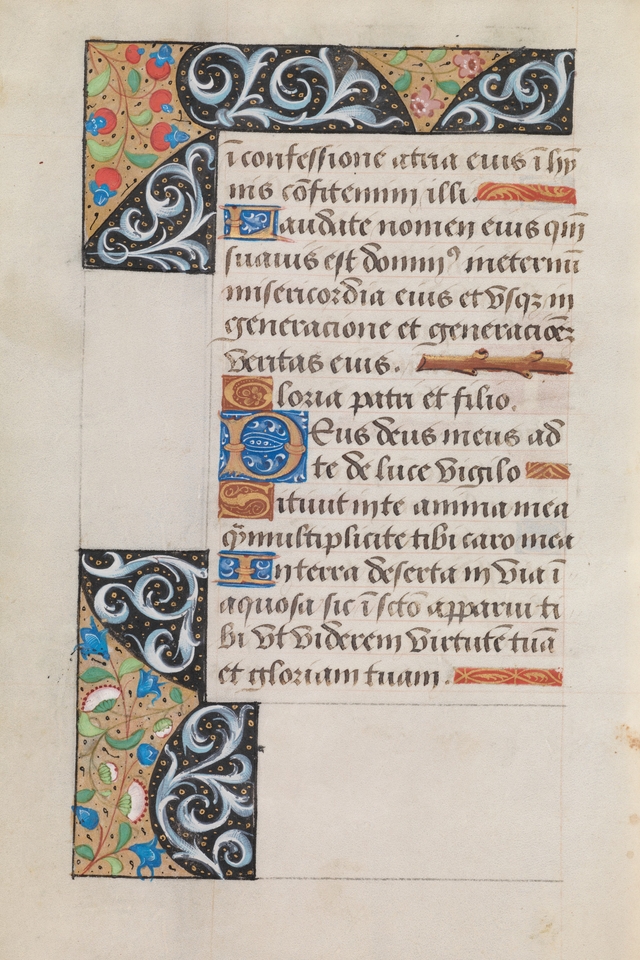 ī confessione atria eius ī hÿ
nis cōfitemini illi.
Laudate nomen eius qm̄
suauis est dominꝰ ineternū
misericordia eius et vsqꝫ in
generacione et generacioēꝫ
veritas eius.
Gloria patri et filio.
Deus deus meus ad
te de luce vigilo
Sitiuit in te anima mea
q̄ multiplicite tibi caro mea
In terra deserta in via ī
aquosa sic ī sctō apparui ti
bi vt viderem virtutē tuā
et gloriam tuam.